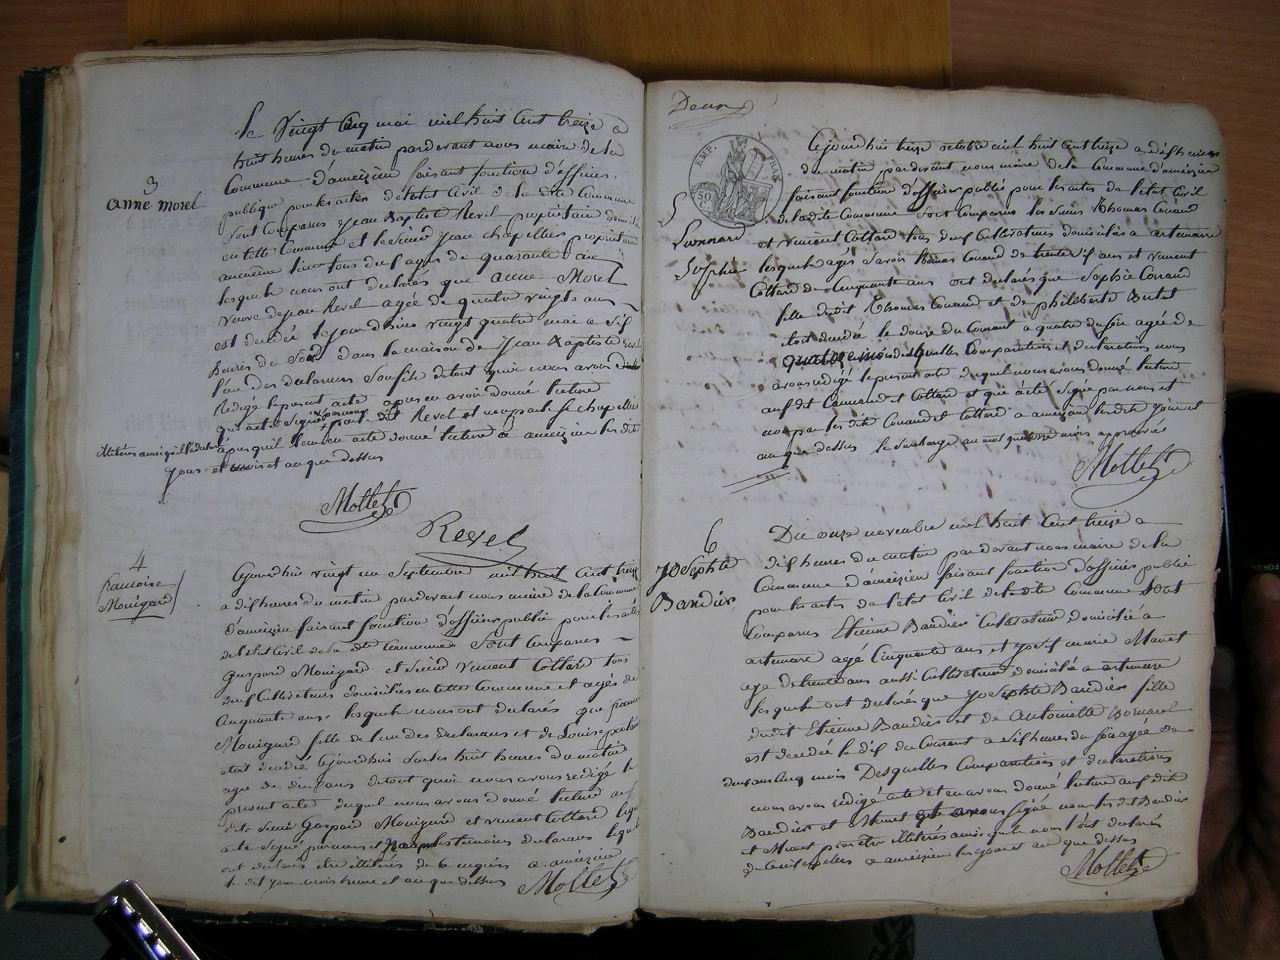 3
anne morel
Le Vingt Cinq mai mil huit Cent treize a
huit heures du matin pardevant nous maire de la
Commune d'ameizieu faisant fonction d'officier
publique pour les actes de l'etat Civil de la dite Commune
sont Comparus Jean Baptiste Revel propriétaire
en cette Commune et le Sieur Jean chapelles propriétaire
tous deux agés de quarante ans
lesquels nous ont declarés que anne Morel
veuve de jean Revel agée de quatre vingts ans
est decedée le jour d'hier vingt quatre mai a six
heures du Soir dans la maison de Jean Baptiste Revel
l'un des declarans Son fils de tout quoi nous avons
Redigé le present acte apres en avoir donné lecture
Revel et non par le Sr chapelles
apres qu'il leur en acte donné lecture à ameizieu les dits
Jour et an que dessus
Mollet
Revel
4
francoise
Monigard
Cejourdhui vingt un Septembre mil huit Cent treize
a dix heures du matin pardevant nous maire de la Commune
d'ameizieu faisant fonction d'officier public pour les actes
de l'etat Civil de la dte Commune Sont Comparus
gaspard Monigard et Sieur Vincent Cottard tous
deux Cultivateurs domiciliés en cette Commune et agés de
Cinquante ans lesquels nous ont declarés que francoise
Monigard fille de l'un des declarans et de Louise
etait decedée Cejourdhui Sur les huit heures du matin
agée de dix ans de tout quoi nous avons redigé le
present acte duquel nous avons donné lecture aux
dits Sieur Gaspard Monigard et vincent Cottard
a été Signé par nous et non par les temoins declarans lesquels
ont declarés être illiterés de Ce enquis a ameizieu
le dit jour mois heure et an que dessus
Mollet
Douze
EMP. FRAN.
5
Sophie
Cejourdhui treize octobre mil huit Cent treize a dix heures
du matin pardevant nous maire de la Commune d'ameizieu
faisant fonction d'officier public pour les actes de l'etat Civil
de la dite Commune Sont Comparus les Sieurs Thomas Conand
et vincent Cottard tous deux Cultivateurs domiciliés a artemare
lesquels agés Savoir Thomas Conand de trente Six ans et vincent
Cottard de Cinquante ans ont declarés que Sophie Conand
fille dudit Thomas Conand et de philiberte
est decedée le douze du Courant a quatre du Soir agée de
quatorze mois desquelles Comparution et declaration nous
avons redigé le present acte duquel nous avons donné lecture
aux dit Conand et Cottard et qui a été Signé par nous et
non par les dits Conand et Cottard a ameizieu les dits jour et
an que dessus la Surcharge au mot quatorze mois approuvée
Mollet
6
Josephte
Baudier
Du onze novembre mil huit Cent treize a
dix heures du matin pardevant nous maire de la
Commune d'ameizieu faisant fonction d'officier public
pour les actes de l'etat Civil de la dite Commune Sont
Comparus Etienne Baudier Cultivateur domicilié a
artemare agé Cinquante ans et joseph marie Monet
agé de trente ans aussi Cultivateur domicilié a artemare
lesquels ont declarés que Josephte Baudier fille
dudit Etienne Baudier et de Antoinette
est decedée le dix du Courant a Six heures du Soir agée de
deux ans Cinq mois Desquelles Comparution et declaration
nous avons redigé acte et en avons donné lecture aux dit
Baudier et Monet et avons Signé non les dit Baudier
et Monet pour être illiterés ainsi qu'ils nous l'ont declarés
de Ce interpellés a ameizieu les jour et an que dessus
Mollet